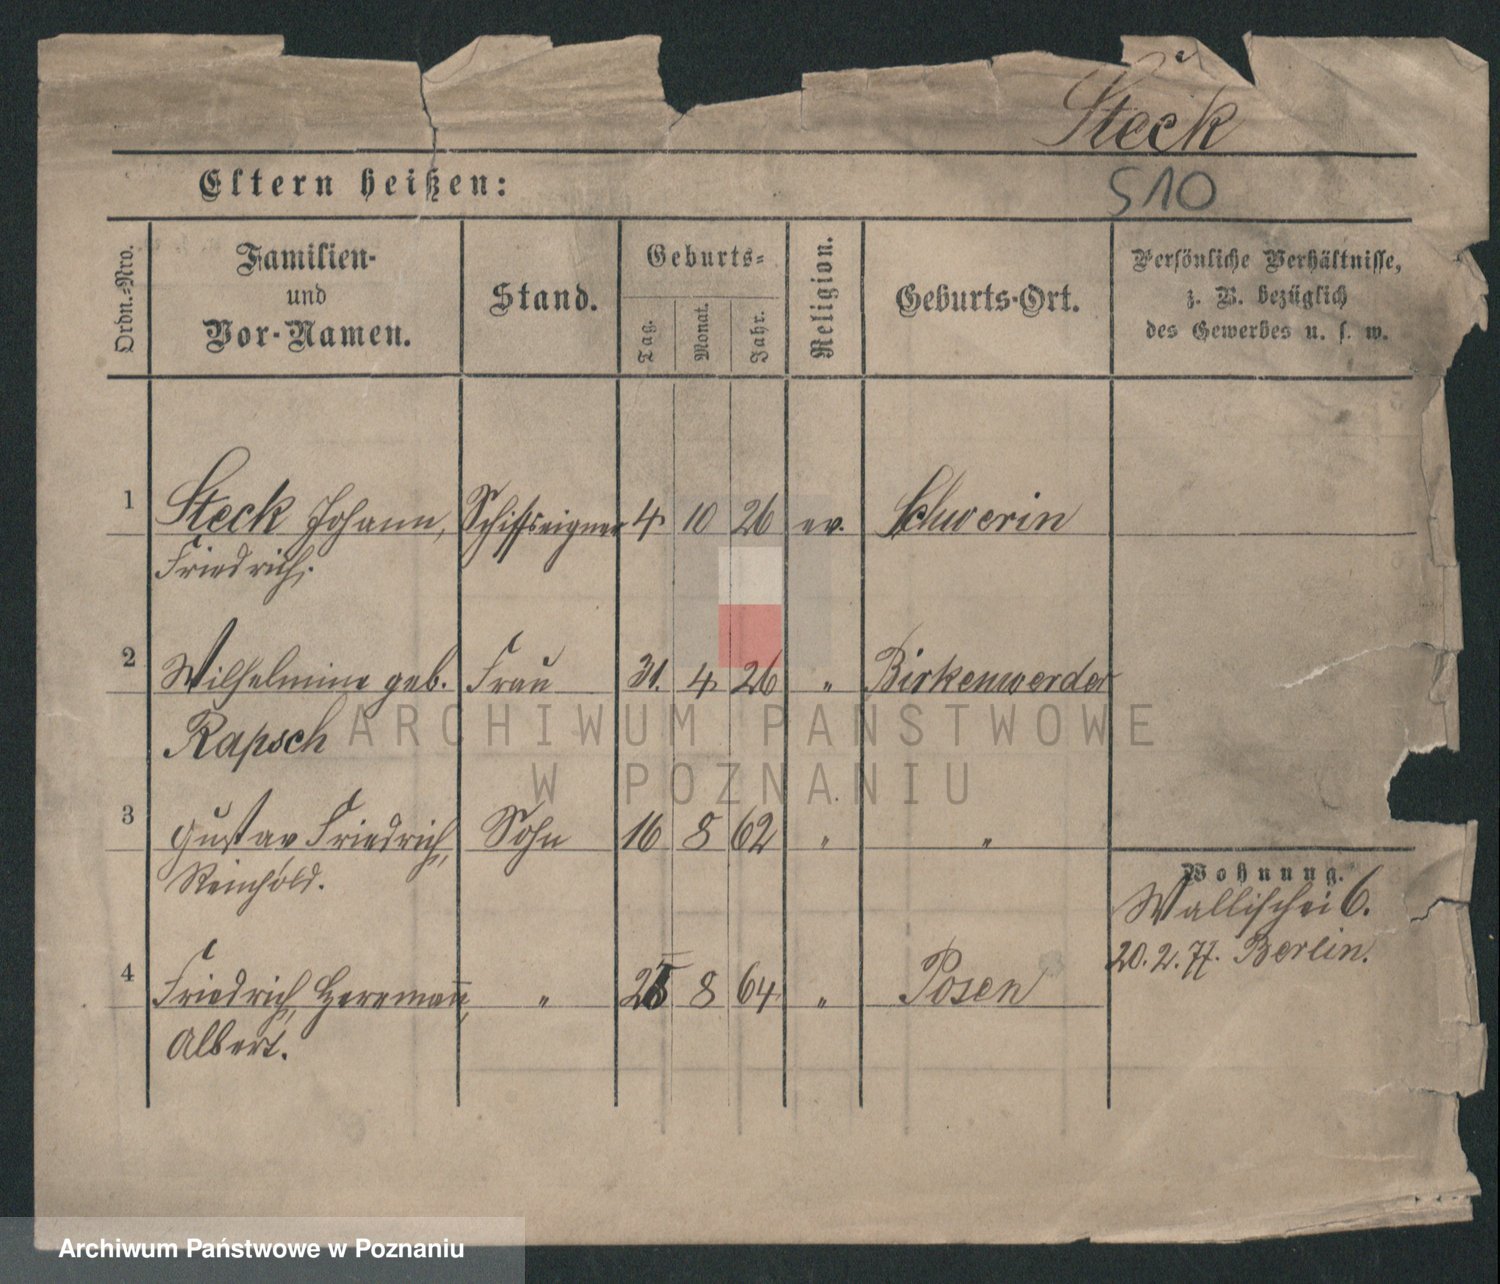 Steck
Eltern heißen:
510
Ordn.-Nro.
Familien-
und
Vor-Namen.
Stand.
Geburts-
Tag.
Monat.
Jahr.
Religion.
Geburts-Ort.
Persönliche Verhältnisse,
z. B. bezüglich
des Gewerbes u. s. w.
1 Steck Johann, Schiffseigner 4 10 26 ev. Schwerin
Friedrich.
2 Wilhelmine geb. Frau 31. 4 26 " Birkenwerder
Rapsch
3 Gustav Friedrich, Sohn 16 8 62 " "
Reinhold.
Wohnung.
Wallischei 6.
20.2.77. Berlin.
4 Friedrich, Hermann, " 8 64 " Posen
Albert.
ARCHIWUM PAŃSTWOWE
W POZNANIU
Archiwum Państwowe w Poznaniu